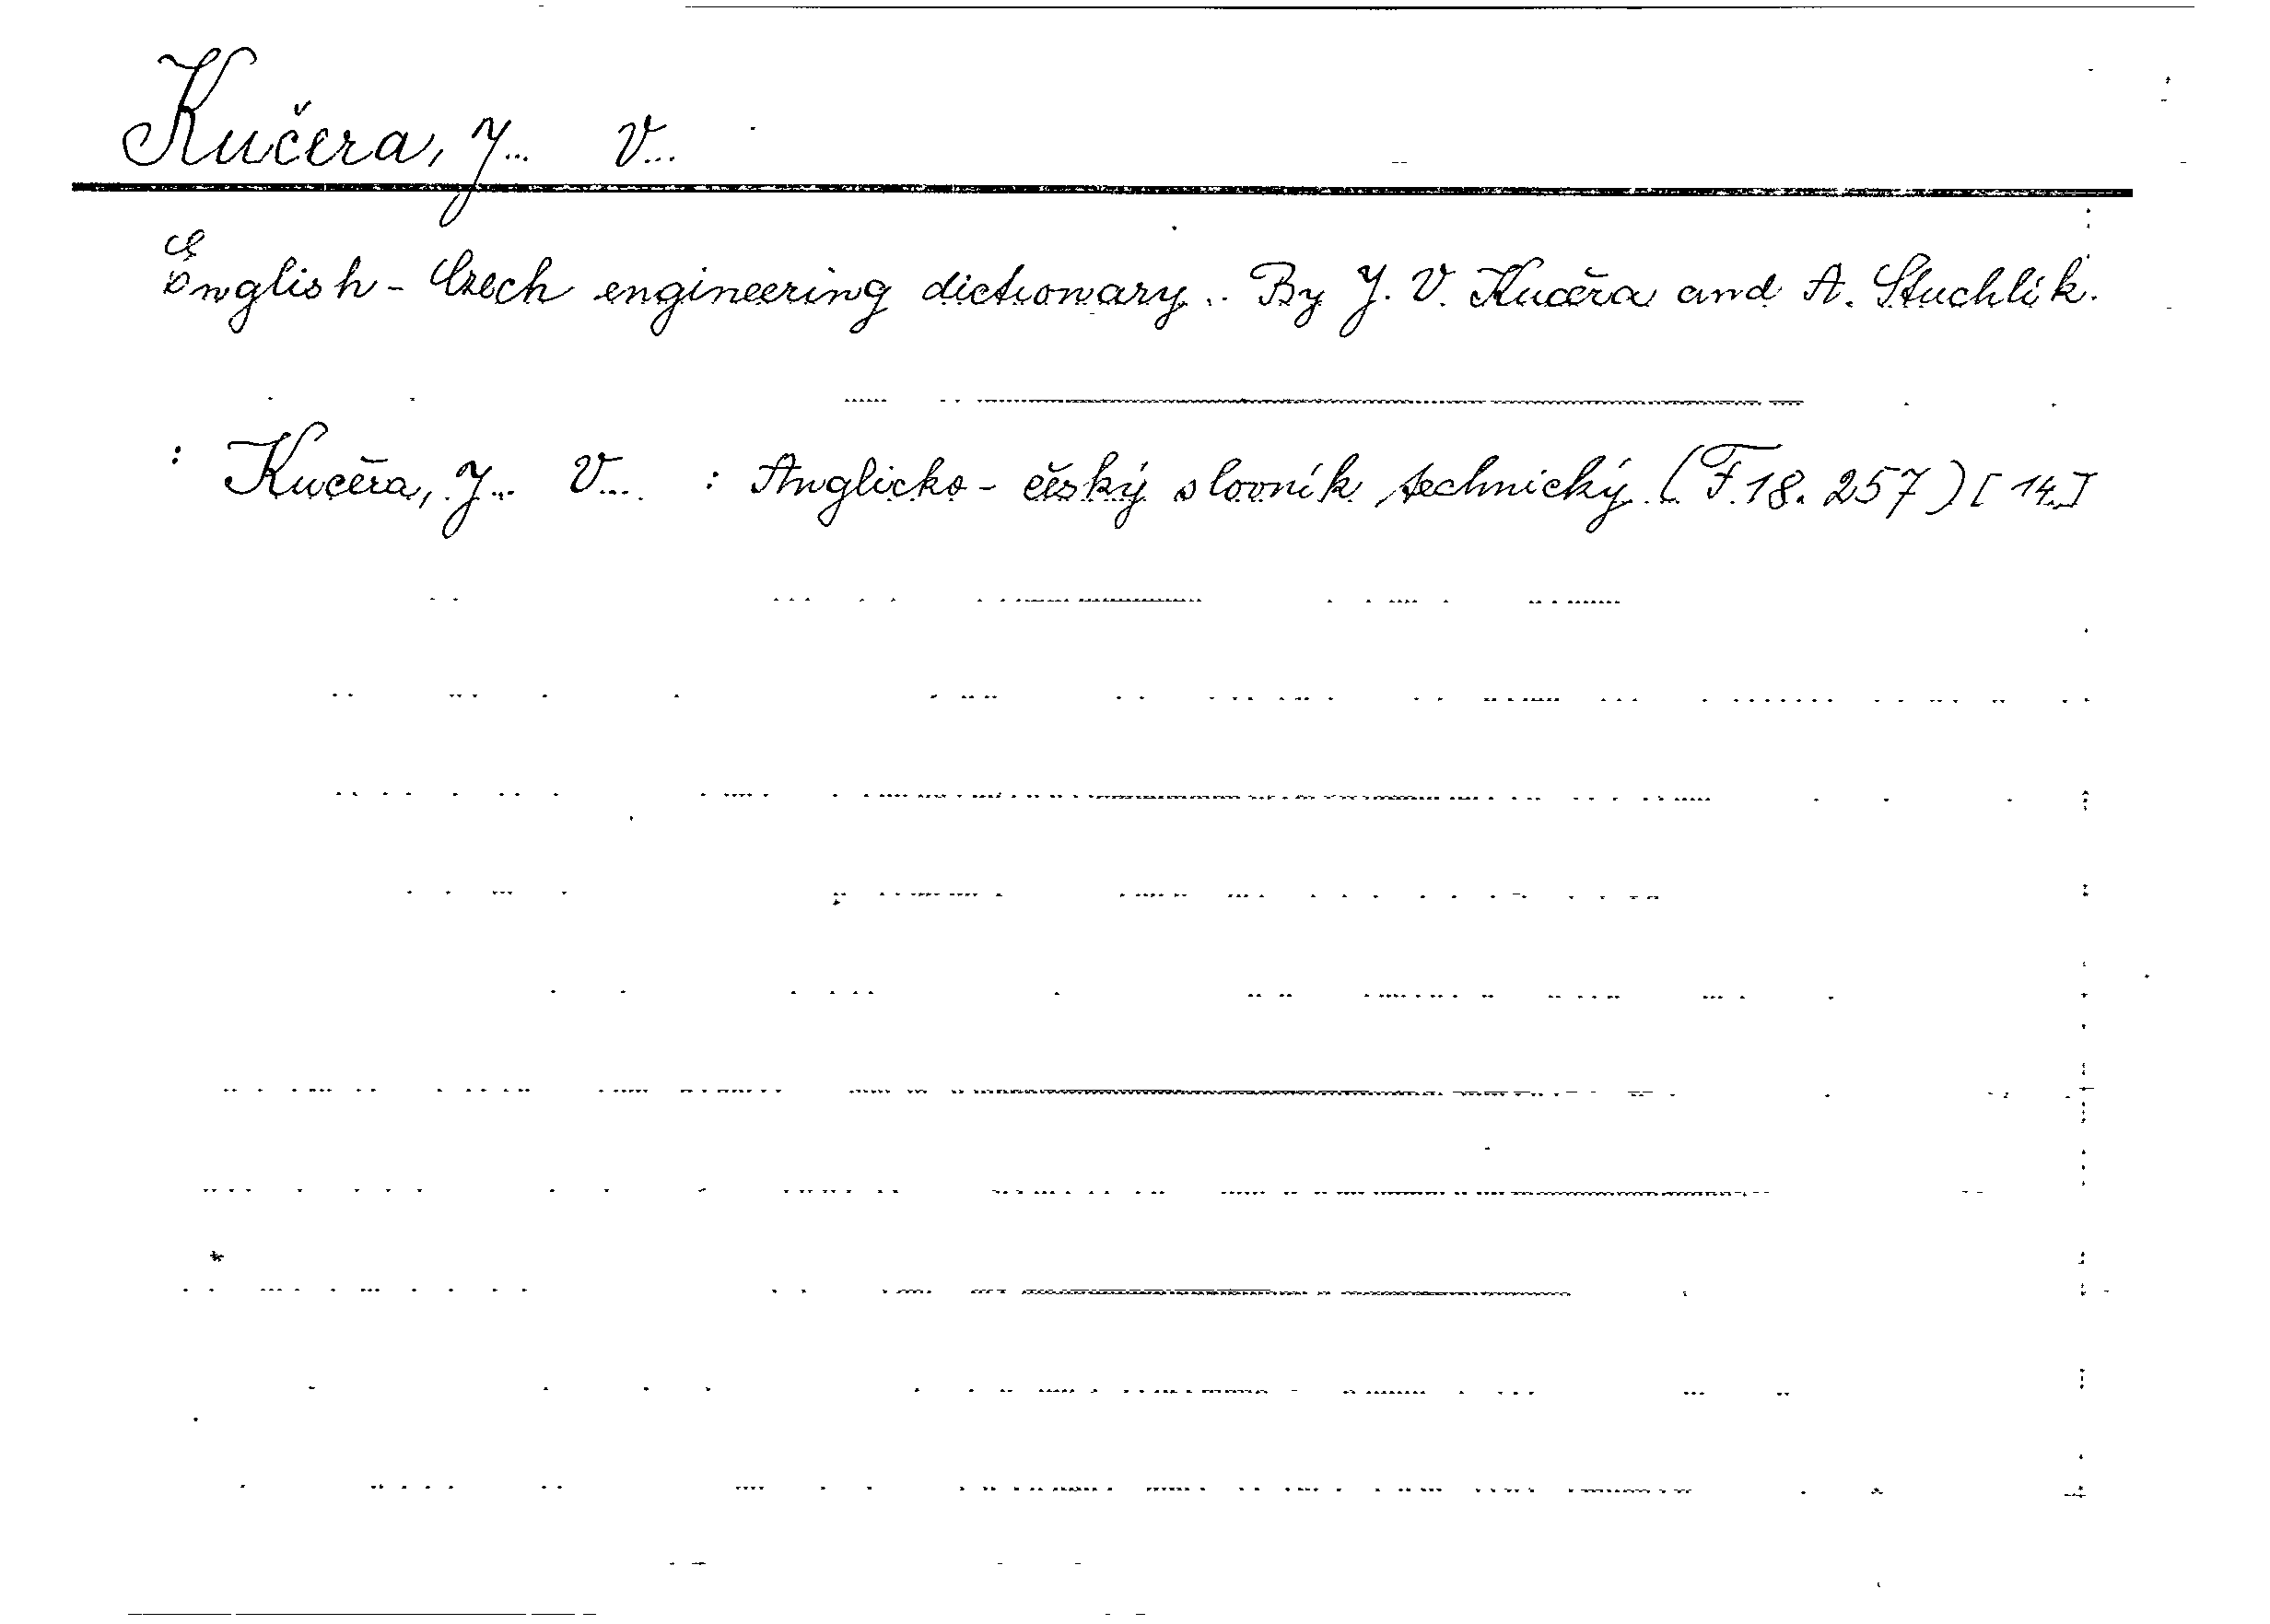 Kučera, J... V...
English - Czech engineering dictionary.. By J. V. Kučera and A. Stuchlík.
: Kučera, J... V.... : Anglicko - český slovník technický. (F.18.257) [14.]